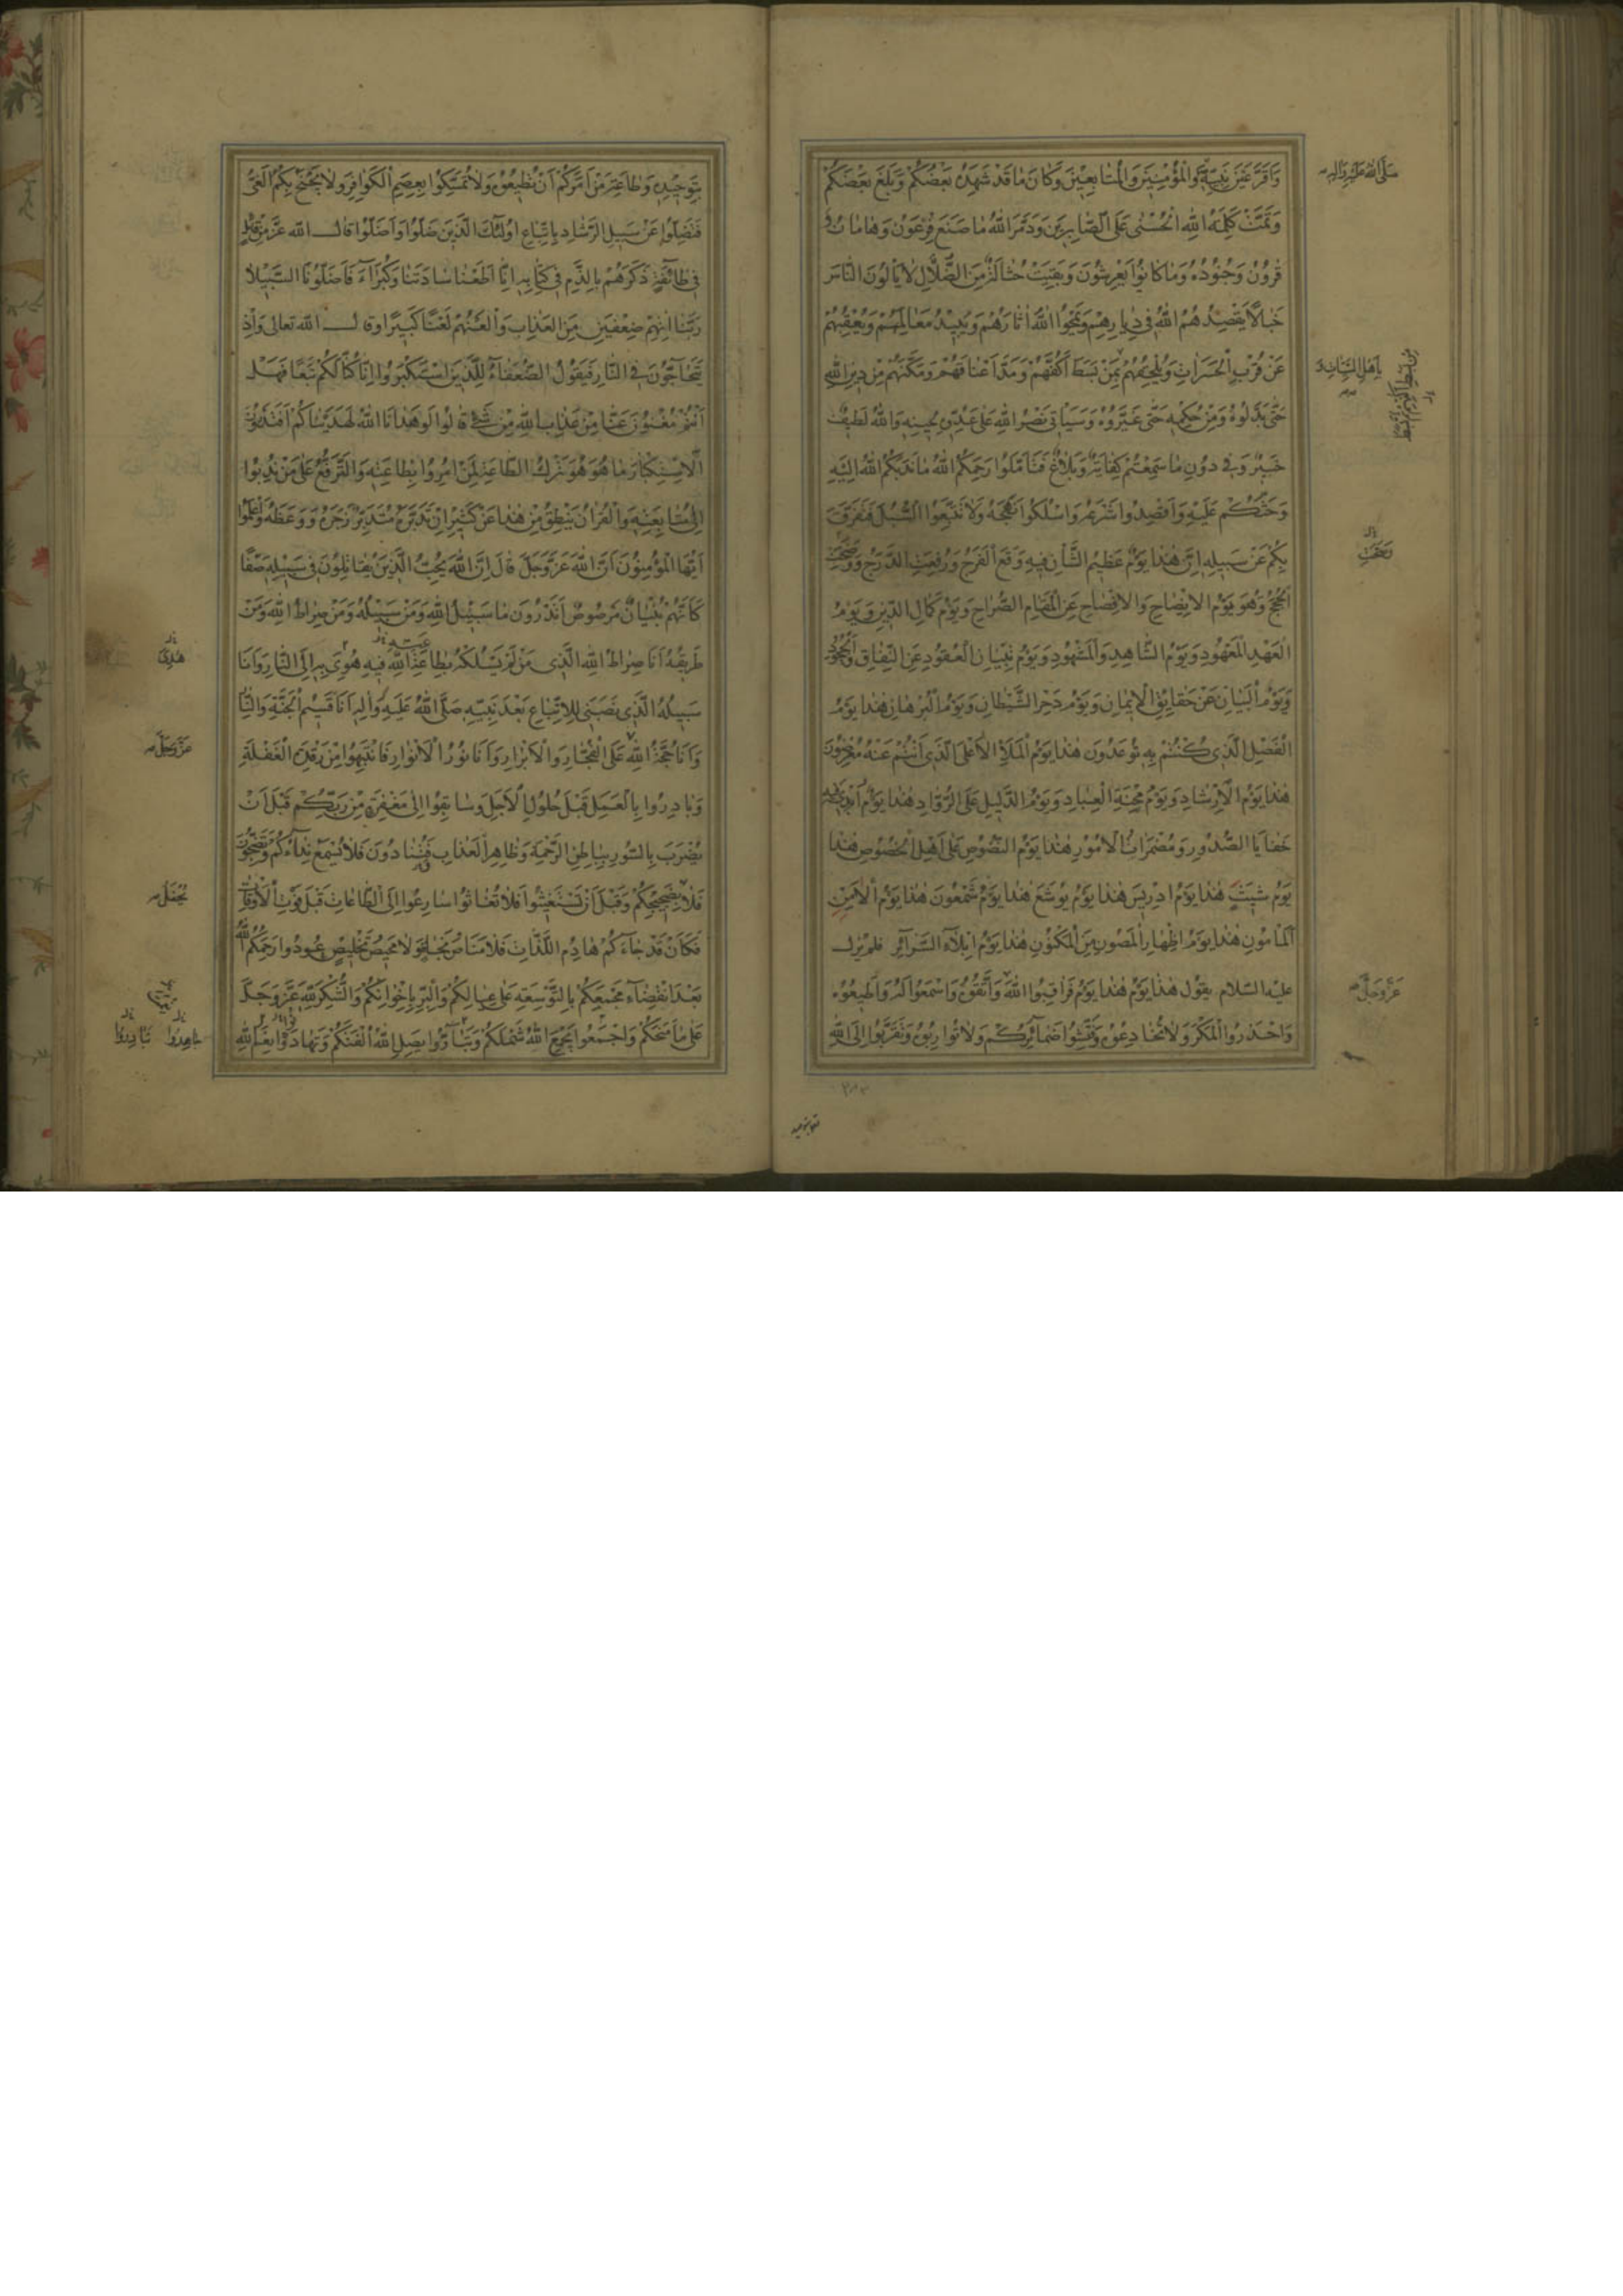 وَاَقَرَّ عَيْنَ نَبِيِّهِ وَالْمُؤْمِنِينَ وَالْمُتَابِعِينَ وَكَانَ مَا قَدْ شَهِدَهُ بَعْضُكُمْ وَبَلَغَ بَعْضَكُمْ
صَلَّى اللهُ عَلَيْهِ وَآلِهِ
وَتَمَّتْ كَلِمَةُ اللهِ الْحُسْنٰى عَلَى الصَّابِرِينَ وَدَمَّرَ اللهُ مَا صَنَعَ فِرْعَوْنُ وَهَامَانُ وَ
قٰرُونُ وَجُنُودُهُ وَمَا كَانُوا يَعْرِشُونَ وَبَقِيَتْ حُثَالَةٌ مِنَ الضُّلَّالِ لَا يَأْلُونَ النَّاسَ
خَبَالًا يَقْصِدُهُمُ اللهُ فِي دِيَارِهِمْ وَيَمْحُوا اللهُ اٰثَارَهُمْ وَيُبِيدُ مَعَالِمَهُمْ وَيُعْقِبُهُمْ
عَنْ قُرْبِ الْحَسَرَاتِ وَيُلْحِقُهُمْ بِمَنْ بَسَطَ اَكُفَّهُمْ وَمَدَّ اَعْنَاقَهُمْ وَمَكَّنَهُمْ مِنْ دِينِ اللهِ
حَتّٰى بَدَّلُوهُ وَمِنْ حُكْمِهِ حَتّٰى غَيَّرُوهُ وَسَيَأْتِي نَصْرُ اللهِ عَلٰى عَدُوِّهِ لِحِينِهِ وَاللهُ لَطِيفٌ
خَبِيرٌ وَفِي دُونِ مَا سَمِعْتُمْ كِفَايَةٌ وَبَلَاغٌ فَتَأَمَّلُوا رَحِمَكُمُ اللهُ مَا نَدَبَكُمُ اللهُ اِلَيْهِ
وَحَثَّكُمْ عَلَيْهِ وَاقْصِدُوا شَرْعَهُ وَاسْلُكُوا نَهْجَهُ وَلَا تَتَّبِعُوا السُّبُلَ فَتَفَرَّقَ
بِكُمْ عَنْ سَبِيلِهِ اِنَّ هٰذَا يَوْمٌ عَظِيمُ الشَّأْنِ فِيهِ وَقَعَ الْفَرَجُ وَرُفِعَتِ الدَّرَجُ وَوَضَحَتِ
الْحُجَجُ وَهُوَ يَوْمُ الْاِيضَاحِ وَالْاِفْصَاحِ عَنِ الْمَقَامِ الصُّرَاحِ وَيَوْمُ كَمَالِ الدِّينِ وَيَوْمُ
الْعَهْدِ الْمَعْهُودِ وَيَوْمُ الشَّاهِدِ وَالْمَشْهُودِ وَيَوْمُ تِبْيَانِ الْعُقُودِ عَنِ النِّفَاقِ وَالْجُحُودِ
وَيَوْمُ الْبَيَانِ عَنْ حَقَايِقِ الْاِيمَانِ وَيَوْمُ دَحْرِ الشَّيْطَانِ وَيَوْمُ الْبُرْهَانِ هٰذَا يَوْمُ
الْفَصْلِ الَّذِي كُنْتُمْ بِهِ تُوعَدُونَ هٰذَا يَوْمُ الْمَلَاِ الْاَعْلَى الَّذِي اَنْتُمْ عَنْهُ مُعْرِضُونَ
هٰذَا يَوْمُ الْاِرْشَادِ وَيَوْمُ مِحْنَةِ الْعِبَادِ وَيَوْمُ الدَّلِيلِ عَلَى الرُّوَّادِ هٰذَا يَوْمُ اَبْدٰى فِيهِ
خَفَايَا الصُّدُورِ وَمُضْمَرَاتِ الْاُمُورِ هٰذَا يَوْمُ النُّصُوصِ عَلٰى اَهْلِ الْخُصُوصِ هٰذَا
يَوْمُ شِيثٍ هٰذَا يَوْمُ اِدْرِيسَ هٰذَا يَوْمُ يُوشَعَ هٰذَا يَوْمُ شَمْعُونَ هٰذَا يَوْمُ الْاَمْنِ
الْمَأْمُونِ هٰذَا يَوْمُ اِظْهَارِ الْمَصُونِ مِنَ الْمَكْنُونِ هٰذَا يَوْمُ اِبْلَاءِ السَّرَآئِرِ فلم يزل
عليه السلام يقول هٰذَا يَوْمُ هٰذَا يَوْمُ فَرَاقِبُوا اللهَ وَاتَّقُوهُ وَاسْمَعُوا لَهُ وَاَطِيعُوهُ
عَزَّ وَجَلَّ
وَاحْذَرُوا الْمَكْرَ وَلَا تُخَادِعُوهُ وَفَتِّشُوا ضَمَآئِرَكُمْ وَلَا تُوَارِبُوهُ وَتَقَرَّبُوا اِلَى اللهِ
بِتَوْحِيدِهِ وَطَاعَةِ مَنْ اَمَرَكُمْ اَنْ تُطِيعُوهُ وَلَا تُمْسِكُوا بِعِصَمِ الْكَوَافِرِ وَلَا يَجْنَحْ بِكُمُ الْغَيُّ
فَتَضِلُّوا عَنْ سَبِيلِ الرَّشَادِ بِاتِّبَاعِ اُولٰئِكَ الَّذِينَ ضَلُّوا وَاَضَلُّوا قَالَ الله عَزَّ مِنْ قَائِلٍ
فِي طَائِفَةٍ ذَكَرَهُمْ بِالذَّمِّ فِي كِتَابِهِ اِنَّا اَطَعْنَا سَادَتَنَا وَكُبَرَآءَنَا فَاَضَلُّونَا السَّبِيلَا
رَبَّنَا اٰتِهِمْ ضِعْفَيْنِ مِنَ الْعَذَابِ وَالْعَنْهُمْ لَعْنًا كَبِيرًا وَقَالَ الله تعالى وَاِذْ
يَتَحَاجُّونَ فِي النَّارِ فَيَقُولُ الضُّعَفَاءُ لِلَّذِينَ اسْتَكْبَرُوا اِنَّا كُنَّا لَكُمْ تَبَعًا فَهَلْ
اَنْتُمْ مُغْنُونَ عَنَّا مِنْ عَذَابِ اللهِ مِنْ شَيْءٍ قَالُوا لَوْ هَدَانَا اللهُ لَهَدَيْنَاكُمْ اَفَتَدْرُونَ
الْاِسْتِكْبَارَ مَا هُوَ هُوَ تَرْكُ الطَّاعَةِ لِمَنْ اُمِرُوا بِطَاعَتِهِ وَالتَّرَفُّعُ عَلٰى مَنْ نُدِبُوا
اِلٰى مُتَابَعَتِهِ وَالْقُرْاٰنُ يَنْطِقُ مِنْ هٰذَا عَنْ كَثِيرٍ اِنْ تَدَبَّرَهُ مُتَدَبِّرٌ زَجَرَهُ وَوَعَظَهُ وَاعْلَمُوا
اَيُّهَا الْمُؤْمِنُونَ اَنَّ اللهَ عَزَّ وَجَلَّ قَالَ اِنَّ اللهَ يُحِبُّ الَّذِينَ يُقَاتِلُونَ فِي سَبِيلِهِ صَفًّا
كَاَنَّهُمْ بُنْيَانٌ مَرْصُوصٌ اَتَدْرُونَ مَا سَبِيلُ اللهِ وَمَنْ سَبِيلُهُ وَمَنْ صِرَاطُ اللهِ وَمَنْ
طَرِيقُهُ اَنَا صِرَاطُ اللهِ الَّذِي مَنْ لَمْ يَسْلُكْهُ بِطَاعَةِ اللهِ فِيهِ هُوِيَ بِهِ اِلَى النَّارِ وَاَنَا
سَبِيلُهُ الَّذِي نَصَبَنِي لِلِاتِّبَاعِ بَعْدَ نَبِيِّهِ صَلَّى اللهُ عَلَيْهِ وَاٰلِهِ اَنَا قَسِيمُ الْجَنَّةِ وَالنَّارِ
وَاَنَا حُجَّةُ اللهِ عَلَى الْفُجَّارِ وَالْاَبْرَارِ وَاَنَا نُورُ الْاَنْوَارِ فَانْتَبِهُوا مِنْ رَقْدَةِ الْغَفْلَةِ
عَزَّ وَجَلَّ
وَبَادِرُوا بِالْعَمَلِ قَبْلَ حُلُولِ الْاَجَلِ وَسَابِقُوا اِلٰى مَغْفِرَةٍ مِنْ رَبِّكُمْ قَبْلَ اَنْ
يُضْرَبَ بِالسُّورِ بِبَاطِنِ الرَّحْمَةِ وَظَاهِرِ الْعَذَابِ فَتُنَادُونَ فَلَا يُسْمَعُ نِدَاؤُكُمْ وَتَضِجُّونَ
فَلَا يُحْفَلُ بِضَجِيجِكُمْ وَقَبْلَ اَنْ تَسْتَغِيثُوا فَلَا تُغَاثُوا سَارِعُوا اِلَى الطَّاعَاتِ قَبْلَ فَوْتِ الْاَوْقَاتِ
فَكَاَنْ قَدْ جَاءَكُمْ هَادِمُ اللَّذَّاتِ فَلَا مَنَاصَ نَجَاةٍ وَلَا مَحِيصَ تَخْلِيصٍ عُودُوا رَحِمَكُمُ اللهُ
بَعْدَ انْقِضَاءِ مَجْمَعِكُمْ بِالتَّوْسِعَةِ عَلٰى عِيَالِكُمْ وَالْبِرِّ بِاِخْوَانِكُمْ وَالشُّكْرِ لِلّٰهِ عَزَّ وَجَلَّ
عَلٰى مَا مَنَحَكُمْ وَاجْتَمِعُوا يَجْمَعِ اللهُ شَمْلَكُمْ وَتَبَارُّوا يَصِلِ اللهُ اُلْفَتَكُمْ وَتَهَادَوْا نِعَمَ اللهِ